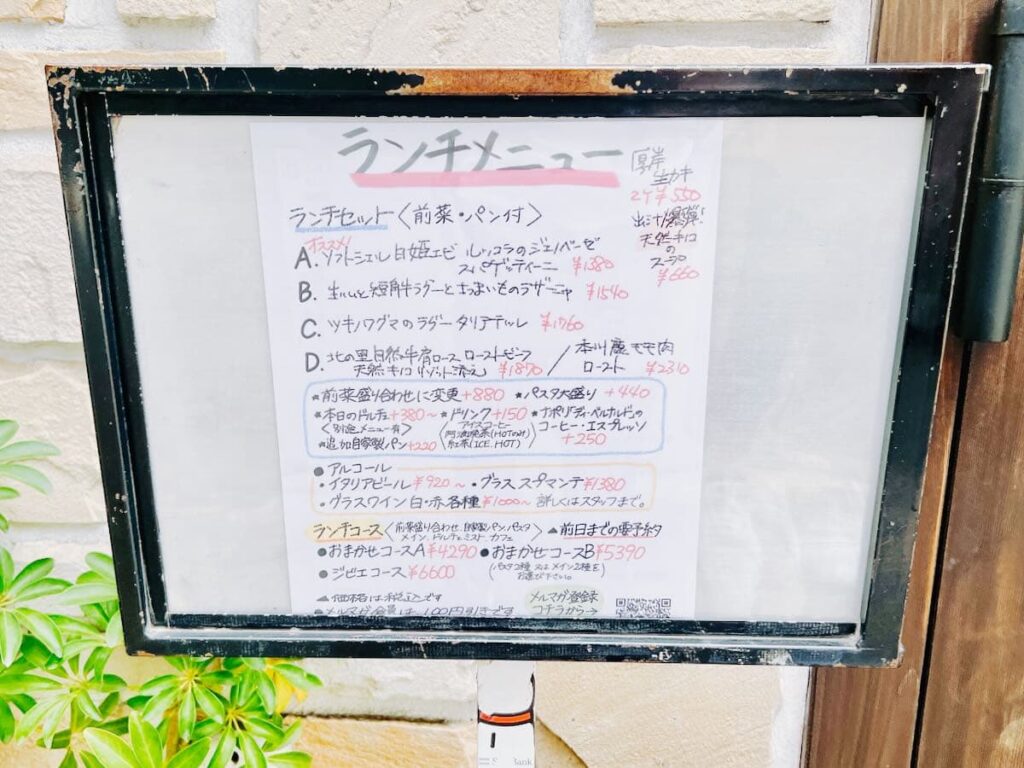 ランチメニュー
厚岸
生カキ
2ケ¥550
出汁爆弾!
天然キノコ
の
スープ
¥660
ランチセット〈前菜・パン付〉
オススメ!
A.ソフトシェル白姫エビ ルッコラのジェノベーゼ
スパゲッティーニ ¥1380
B.生ハムと短角牛ラグーとさつまいものラザーニャ ¥1540
C.ツキノワグマのラグー タリアテッレ ¥1760
D.北の里自然牛肩ロース ローストビーフ
天然キノコリゾット添え ¥1870
/本川鹿モモ肉
ロースト ¥2310
★前菜盛り合わせに変更+880 ★パスタ大盛り +440
★本日のドルチェ+380〜 ★ドリンク+150 ★ナポリ"ディ・ベルナルド"の
〈別途メニュー有〉 アイスコーヒー コーヒー・エスプレッソ
紅茶(ICE.HOT) +250
★追加自家製パン+220
●アルコール
・イタリアビール¥920〜 ・グラススプマンテ¥1380
・グラスワイン 白・赤各種¥1000〜 詳しくはスタッフまで。
ランチコース〈前菜盛り合わせ、自家製パン、パスタ
メイン、ドルチェミスト、カフェ〉▲前日までの要予約
●おまかせコースA¥4290 ●おまかせコースB¥5390
(パスタ2種 又は メイン2種を
お選び下さい。)
●ジビエコース¥6600
▲価格は税込です
●メルマガ会員は、100円引きです
メルマガ登録
コチラから→